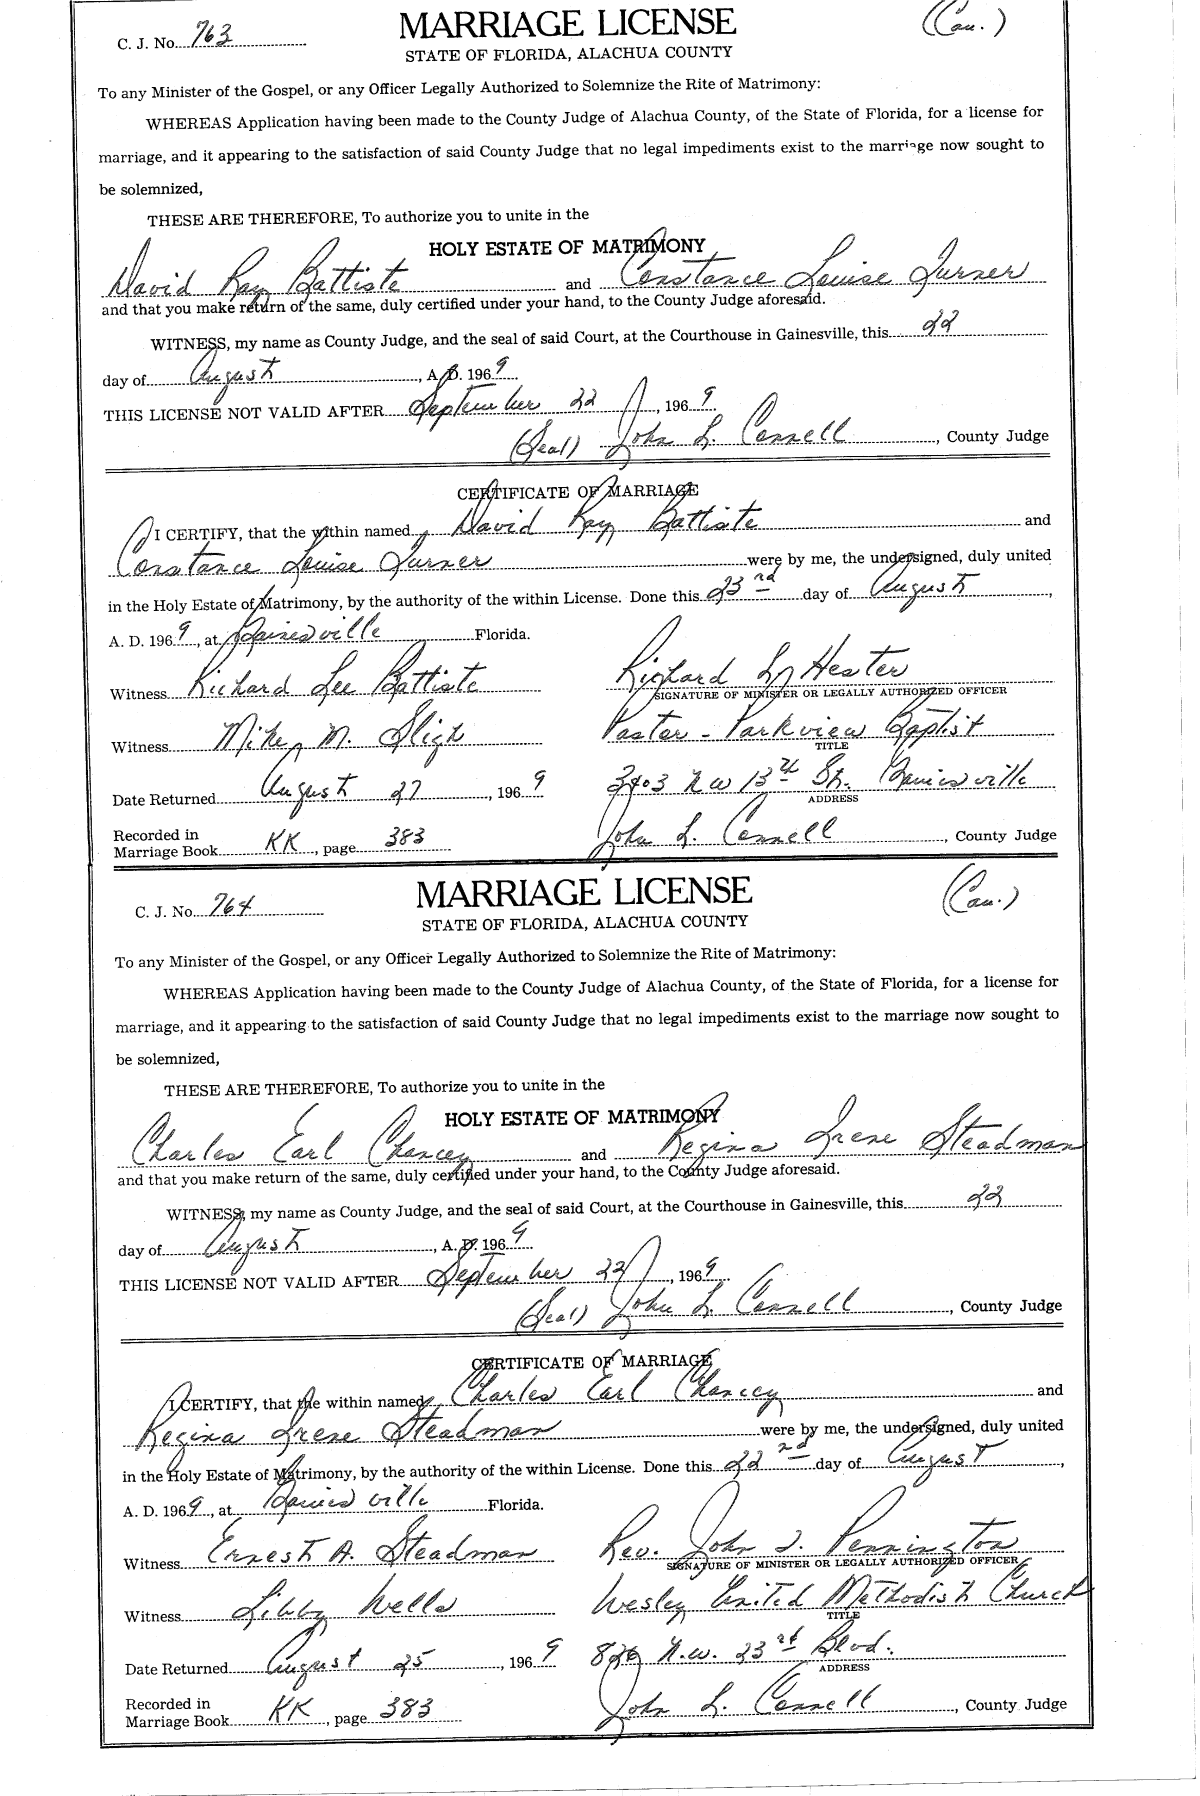 C. J. No. 763
MARRIAGE LICENSE
(Cau.)
STATE OF FLORIDA, ALACHUA COUNTY
To any Minister of the Gospel, or any Officer Legally Authorized to Solemnize the Rite of Matrimony:
WHEREAS Application having been made to the County Judge of Alachua County, of the State of Florida, for a license for
marriage, and it appearing to the satisfaction of said County Judge that no legal impediments exist to the marriage now sought to
be solemnized,
THESE ARE THEREFORE, To authorize you to unite in the
HOLY ESTATE OF MATRIMONY
David Ray Battiste and Constance Louise Turner
and that you make return of the same, duly certified under your hand, to the County Judge aforesaid.
WITNESS, my name as County Judge, and the seal of said Court, at the Courthouse in Gainesville, this 22
day of August, A. D. 1969
THIS LICENSE NOT VALID AFTER September 22, 1969
(Seal) John L. Connell, County Judge
CERTIFICATE OF MARRIAGE
I CERTIFY, that the within named David Ray Battiste and
Constance Louise Turner were by me, the undersigned, duly united
in the Holy Estate of Matrimony, by the authority of the within License. Done this 23rd day of August,
A. D. 1969, at Gainesville Florida.
Witness Richard Lee Battiste Richard L. Hester
SIGNATURE OF MINISTER OR LEGALLY AUTHORIZED OFFICER
Witness Mikey M. Sligh Pastor - Parkview Baptist
TITLE
Date Returned August 27, 1969 3403 NW 13th St. Gainesville
ADDRESS
Recorded in
Marriage Book KK, page 383 John L. Connell, County Judge
C. J. No. 764
MARRIAGE LICENSE
(Cau.)
STATE OF FLORIDA, ALACHUA COUNTY
To any Minister of the Gospel, or any Officer Legally Authorized to Solemnize the Rite of Matrimony:
WHEREAS Application having been made to the County Judge of Alachua County, of the State of Florida, for a license for
marriage, and it appearing to the satisfaction of said County Judge that no legal impediments exist to the marriage now sought to
be solemnized,
THESE ARE THEREFORE, To authorize you to unite in the
HOLY ESTATE OF MATRIMONY
Charles Earl Chancey and Regina Irene Steadman
and that you make return of the same, duly certified under your hand, to the County Judge aforesaid.
WITNESS, my name as County Judge, and the seal of said Court, at the Courthouse in Gainesville, this 22
day of August, A. D. 1969
THIS LICENSE NOT VALID AFTER September 22, 1969
(Seal) John L. Connell, County Judge
CERTIFICATE OF MARRIAGE
I CERTIFY, that the within named Charles Earl Chancey and
Regina Irene Steadman were by me, the undersigned, duly united
in the Holy Estate of Matrimony, by the authority of the within License. Done this 22nd day of August,
A. D. 1969, at Gainesville Florida.
Witness Ernest A. Steadman Rev. John J. Pennington
SIGNATURE OF MINISTER OR LEGALLY AUTHORIZED OFFICER
Witness Libby Wells Wesley United Methodist Church
TITLE
Date Returned August 25, 1969 826 N.W. 23rd Blvd.
ADDRESS
Recorded in
Marriage Book KK, page 383 John L. Connell, County Judge